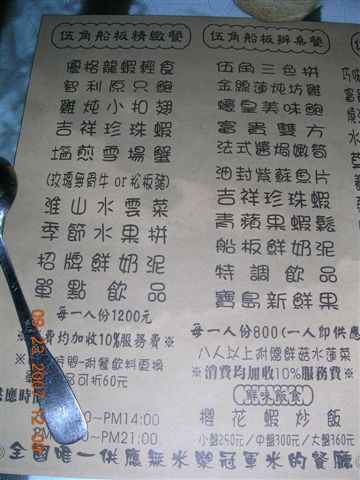 伍角船板精緻餐
優格龍蝦輕食
智利原只鮑
雞炖小扣翅
吉祥珍珠蝦
塩煎雪場蟹
(玫瑰無骨牛 or 松板豬)
淮山水雲菜
季節水果拼
招牌鮮奶泥
單點飲品
每一人份1200元
費均加收10%服務費※
時間-附餐飲料更換
品可折60元
供應時
PM14:00
PM21:00
伍角船板辦桌餐
伍角三色拼
金線蓮炖坊雞
蠔皇美味鮑
富貴雙方
法式醬焗嫩筍
油封紫蘇魚片
吉祥珍珠蝦
青蘋果蝦鬆
船板鮮奶泥
特調飲品
寶島新鮮果
每一人份800(一人即供應
八人以上附贈鮮菇水蓮菜
※消費均加收10%服務費※
鮮味飯食
櫻花蝦炒飯
小盤250元/中盤300元/大盤360元
◎全國唯一供應無米樂冠軍米的餐廳◎